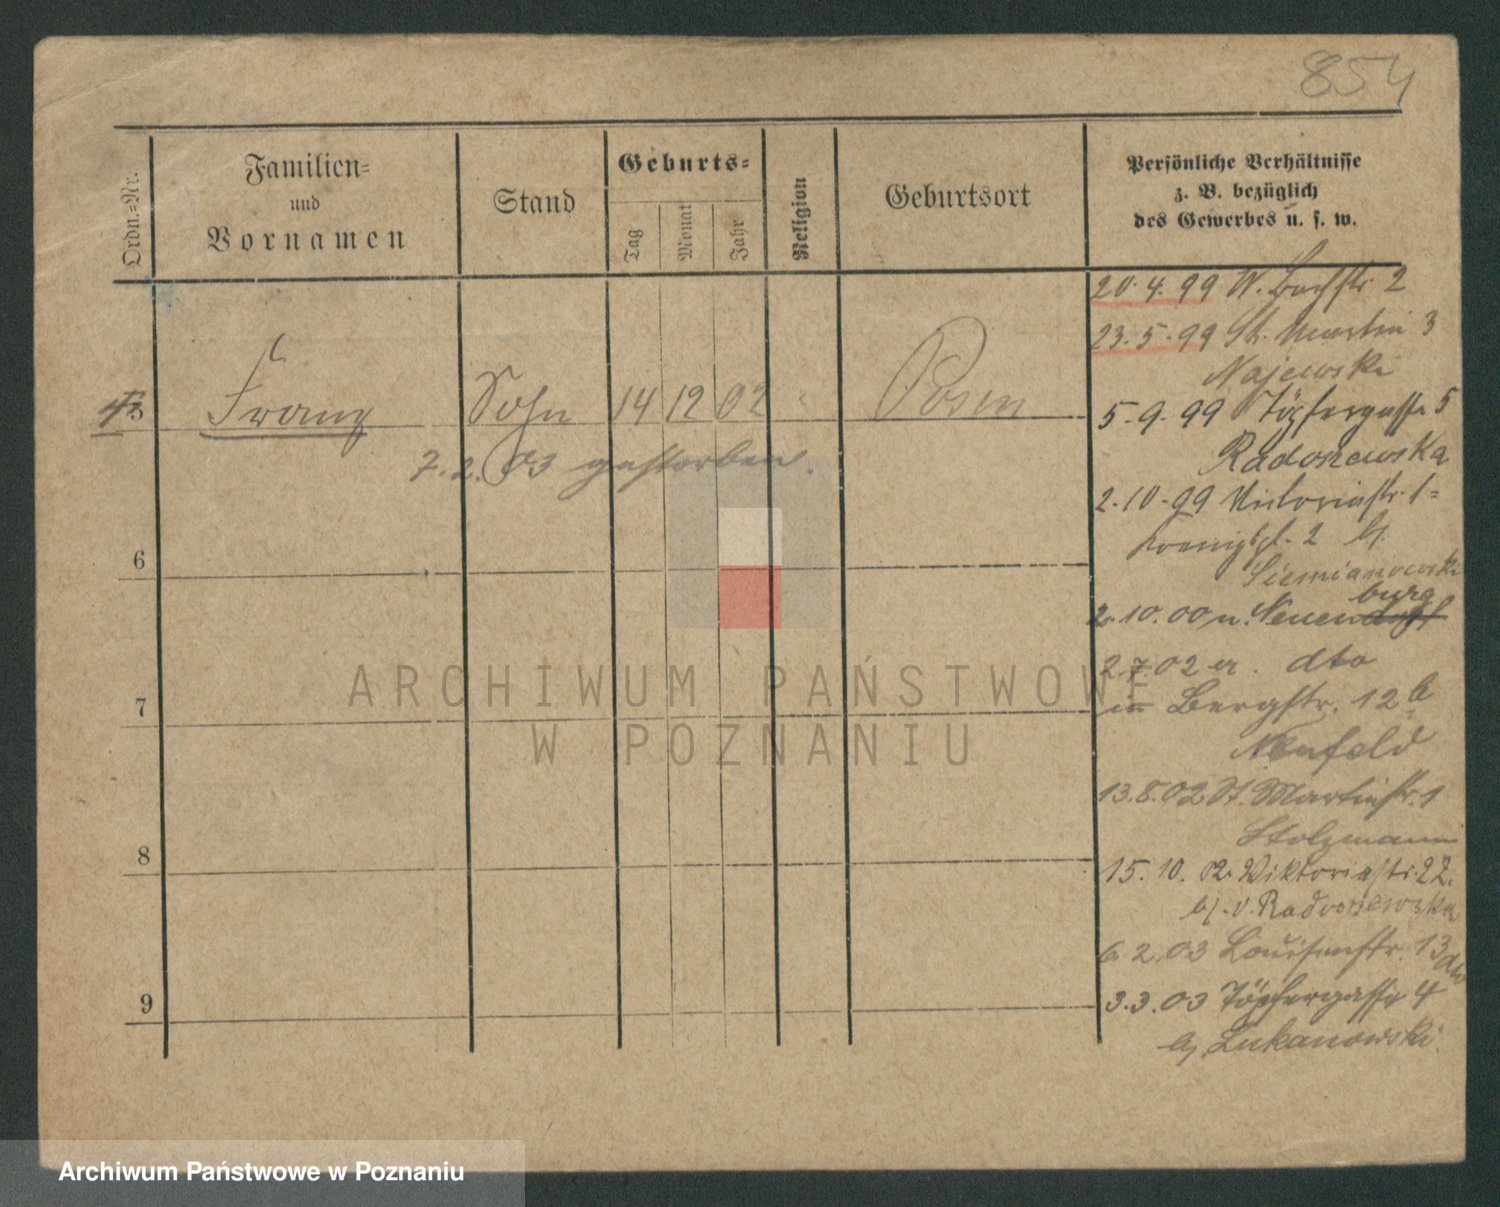 854
Ordn.-Nr.
Familien-
und
Vornamen
Stand
Geburts-
Tag
Monat
Jahr
Religion
Geburtsort
Persönliche Verhältnisse
z. B. bezüglich
des Gewerbes u. s. w.
5 Franz Sohn 14 12 02 Posen
7.2.03 gestorben.
6
7
8
9
20.4.99 W. Bachstr. 2
23.5.99 St. Martin 3
Najewski
5.9.99 Töpfergasse 5
Radoszewska
2.10.99 Victoriastr. 1
2 b/
Siemianowski
burg
2.10.00 n. Neuendorf
2.7.02 dto
in Bergstr. 12 b
Neufeld
13.8.02 St. Martinstr. 1
Stolzmann
15.10.02 Wiktoriastr. 22.
b/. v. Radoszewska
6.2.03 Louisenstr. 13 dto
3.3.03 Töpfergasse 4
b/ Lukanowski.
ARCHIWUM PAŃSTWOWE
W POZNANIU
Archiwum Państwowe w Poznaniu